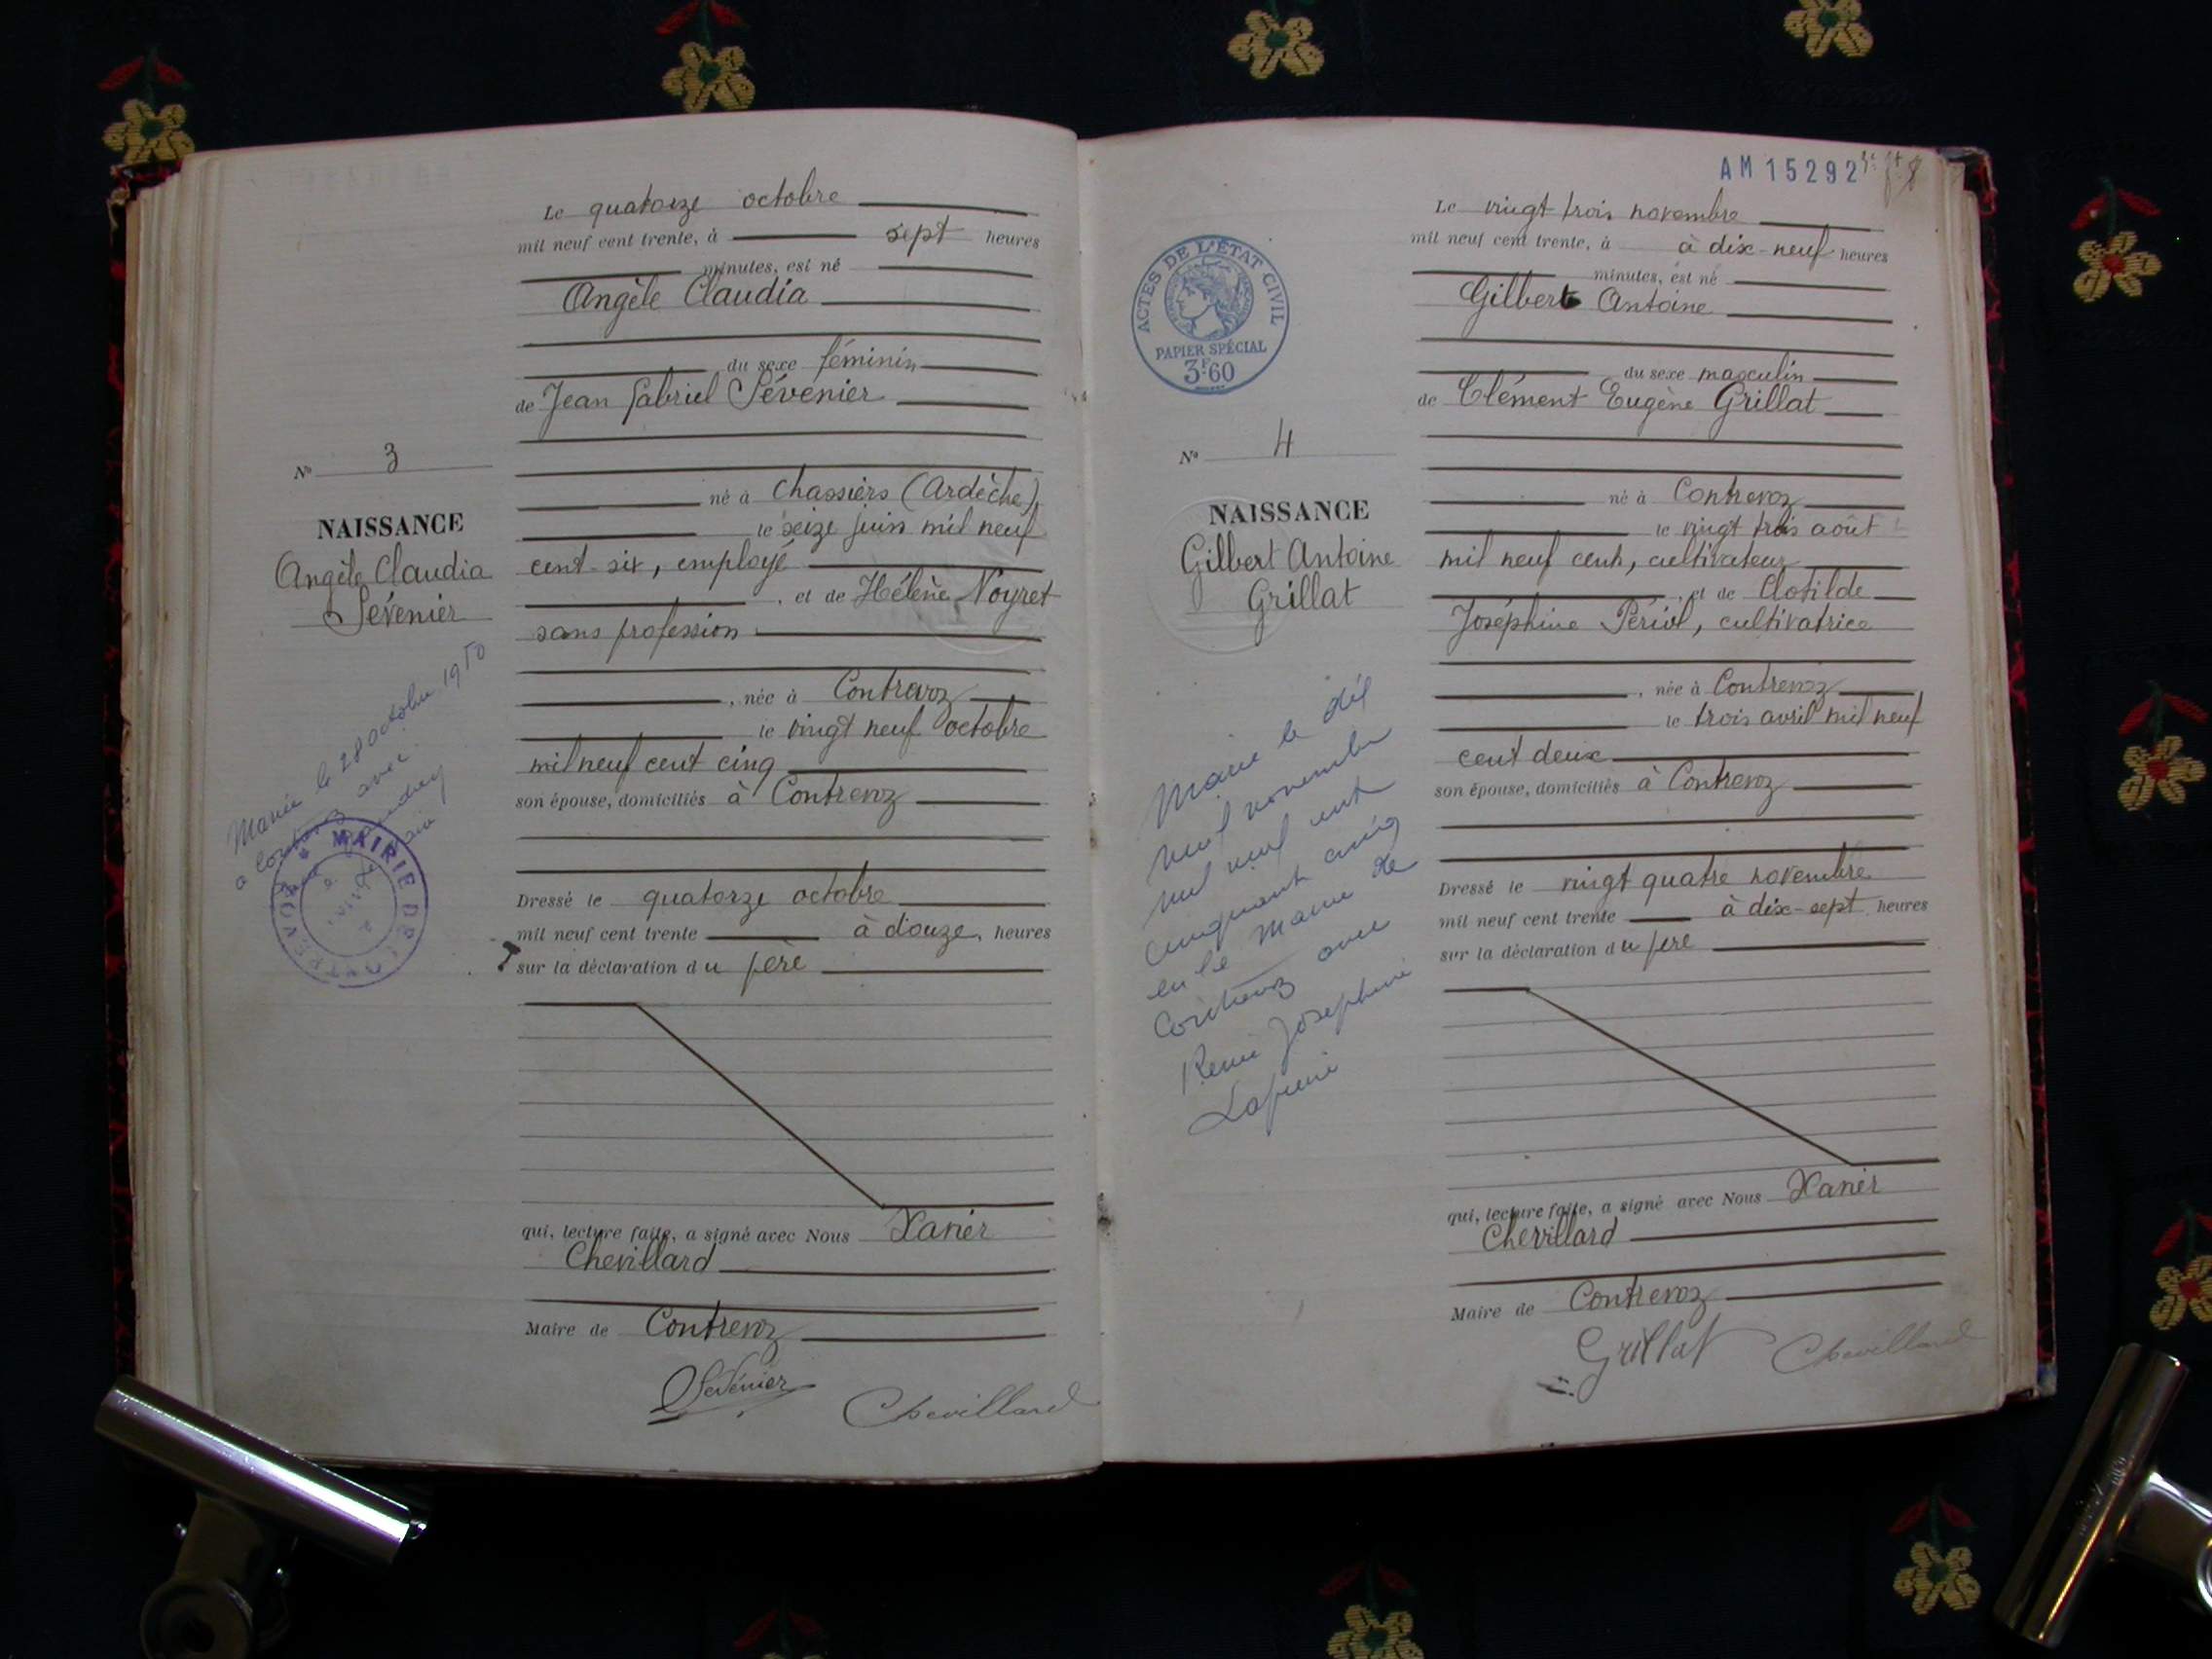 Le quatorze octobre
mil neuf cent trente, à sept heures
minutes, est né
Angèle Claudia
du sexe féminin
de Jean Gabriel Sévenier
N° 3
né à Chassiers (Ardèche)
NAISSANCE
le seize juin mil neuf
Angèle Claudia
cent-six, employé
Sévenier
, et de Hélène Noyret
sans profession
, née à Contrevoz
le vingt neuf octobre
mil neuf cent cinq
son épouse, domiciliés à Contrevoz
Mariée le 28 octobre 1950
à Contrevoz avec
MAIRIE DE CONTREVOZ
Dressé le quatorze octobre
mil neuf cent trente à douze, heures
sur la déclaration du père
qui, lecture faite, a signé avec Nous Xavier
Chevillard
Maire de Contrevoz
Sévenier Chevillard
AM 15292
Le vingt trois novembre
mil neuf cent trente, à à dix-neuf heures
minutes, est né
Gilbert Antoine
ACTES DE L'ÉTAT CIVIL
PAPIER SPÉCIAL
3F60
du sexe masculin
de Clément Eugène Grillat
N° 4
né à Contrevoz
NAISSANCE
le vingt trois août
Gilbert Antoine
mil neuf cent, cultivateur
Grillat
, et de Clotilde
Joséphine Périol, cultivatrice
, née à Contrevoz
le trois avril mil neuf
cent deux
son épouse, domiciliés à Contrevoz
Marié le dix
neuf novembre
mil neuf cent
cinquante cinq
en la Mairie de
Contrevoz avec
Joséphine
Dressé le vingt quatre novembre
mil neuf cent trente à dix-sept heures
sur la déclaration du père
qui, lecture faite, a signé avec Nous Xavier
Chevillard
Maire de Contrevoz
Grillat Chevillard